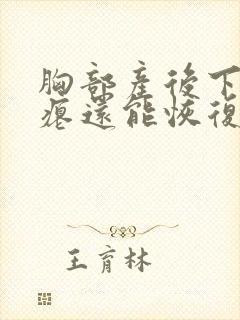 胸部產後下
瘪還能恢復
王育林